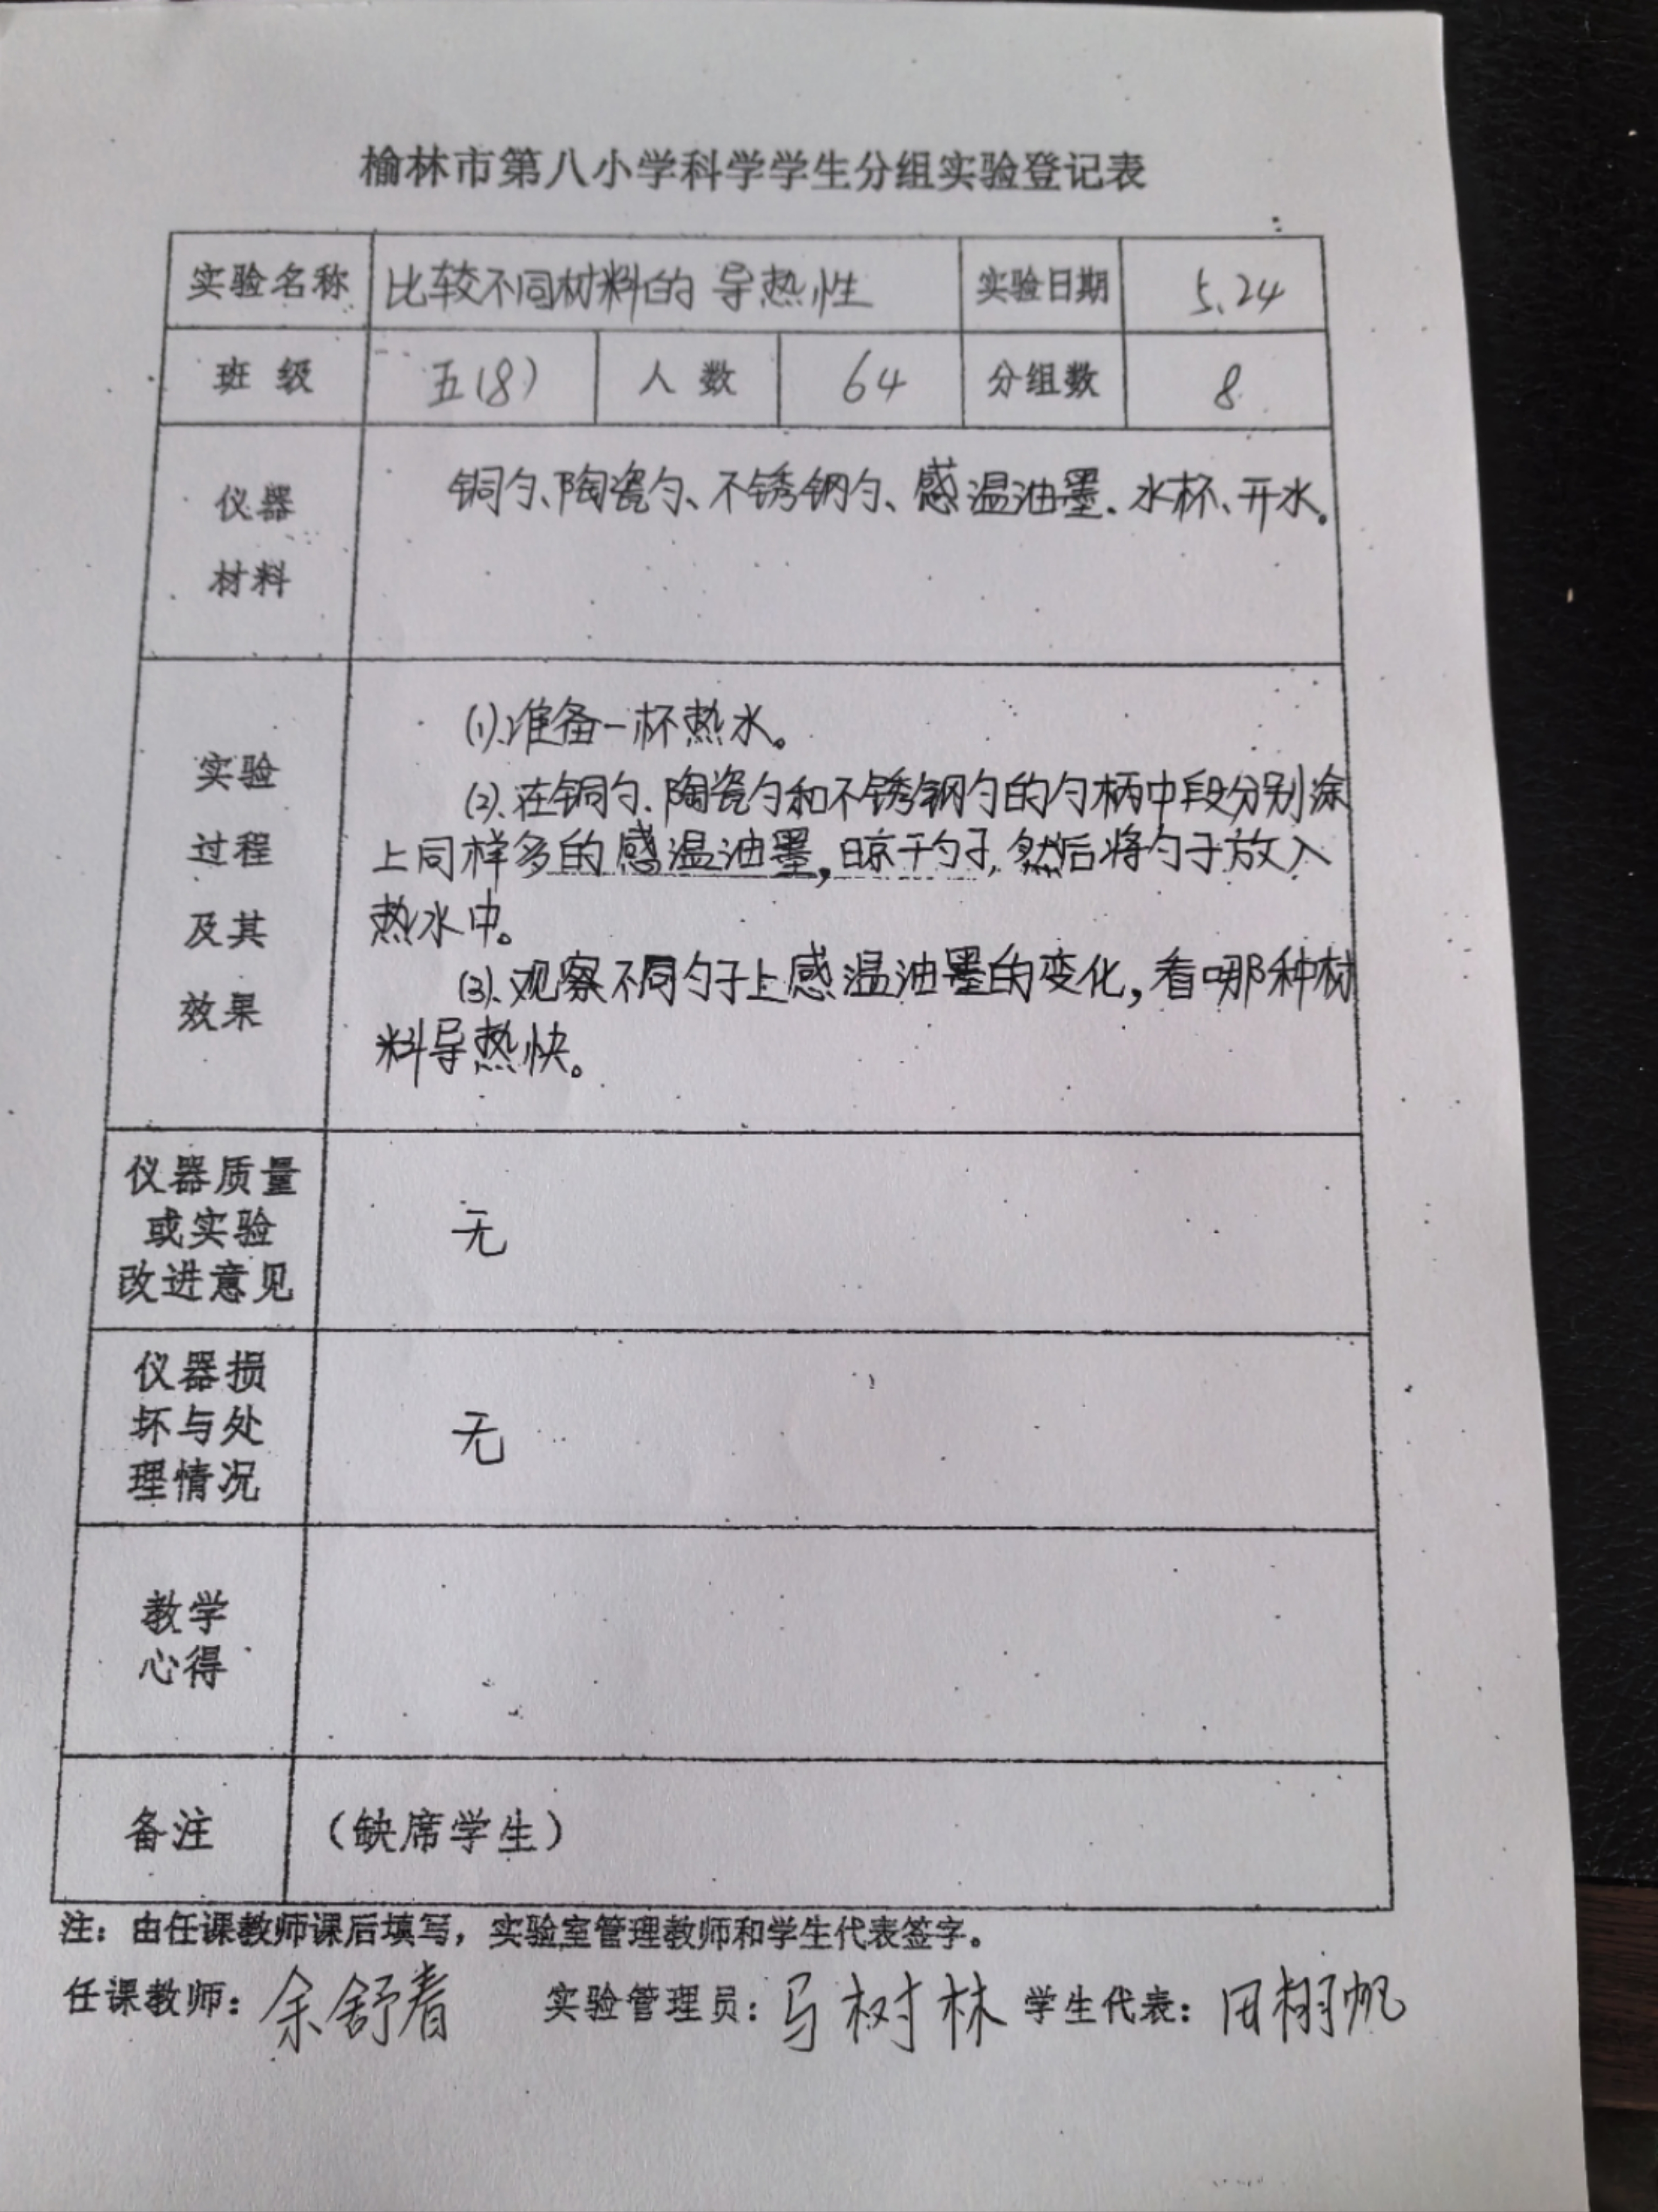 榆林市第八小学科学学生分组实验登记表
实验名称 比较不同材料的导热性 实验日期 5.24
班级 五(8) 人数 64 分组数 8
仪器
材料
铜勺、陶瓷勺、不锈钢勺、感温油墨、水杯、开水。
实验
过程
及其
效果
(1).准备一杯热水。
(2).在铜勺、陶瓷勺和不锈钢勺的勺柄中段分别涂
上同样多的感温油墨,晾干勺子,然后将勺子放入
热水中。
(3).观察不同勺子上感温油墨的变化,看哪种材
料导热快。
仪器质量
或实验
改进意见
无
仪器损
坏与处
理情况
无
教学
心得
备注 (缺席学生)
注:由任课教师课后填写,实验室管理教师和学生代表签字。
任课教师:余舒春 实验管理员:马树林 学生代表:田栩帆